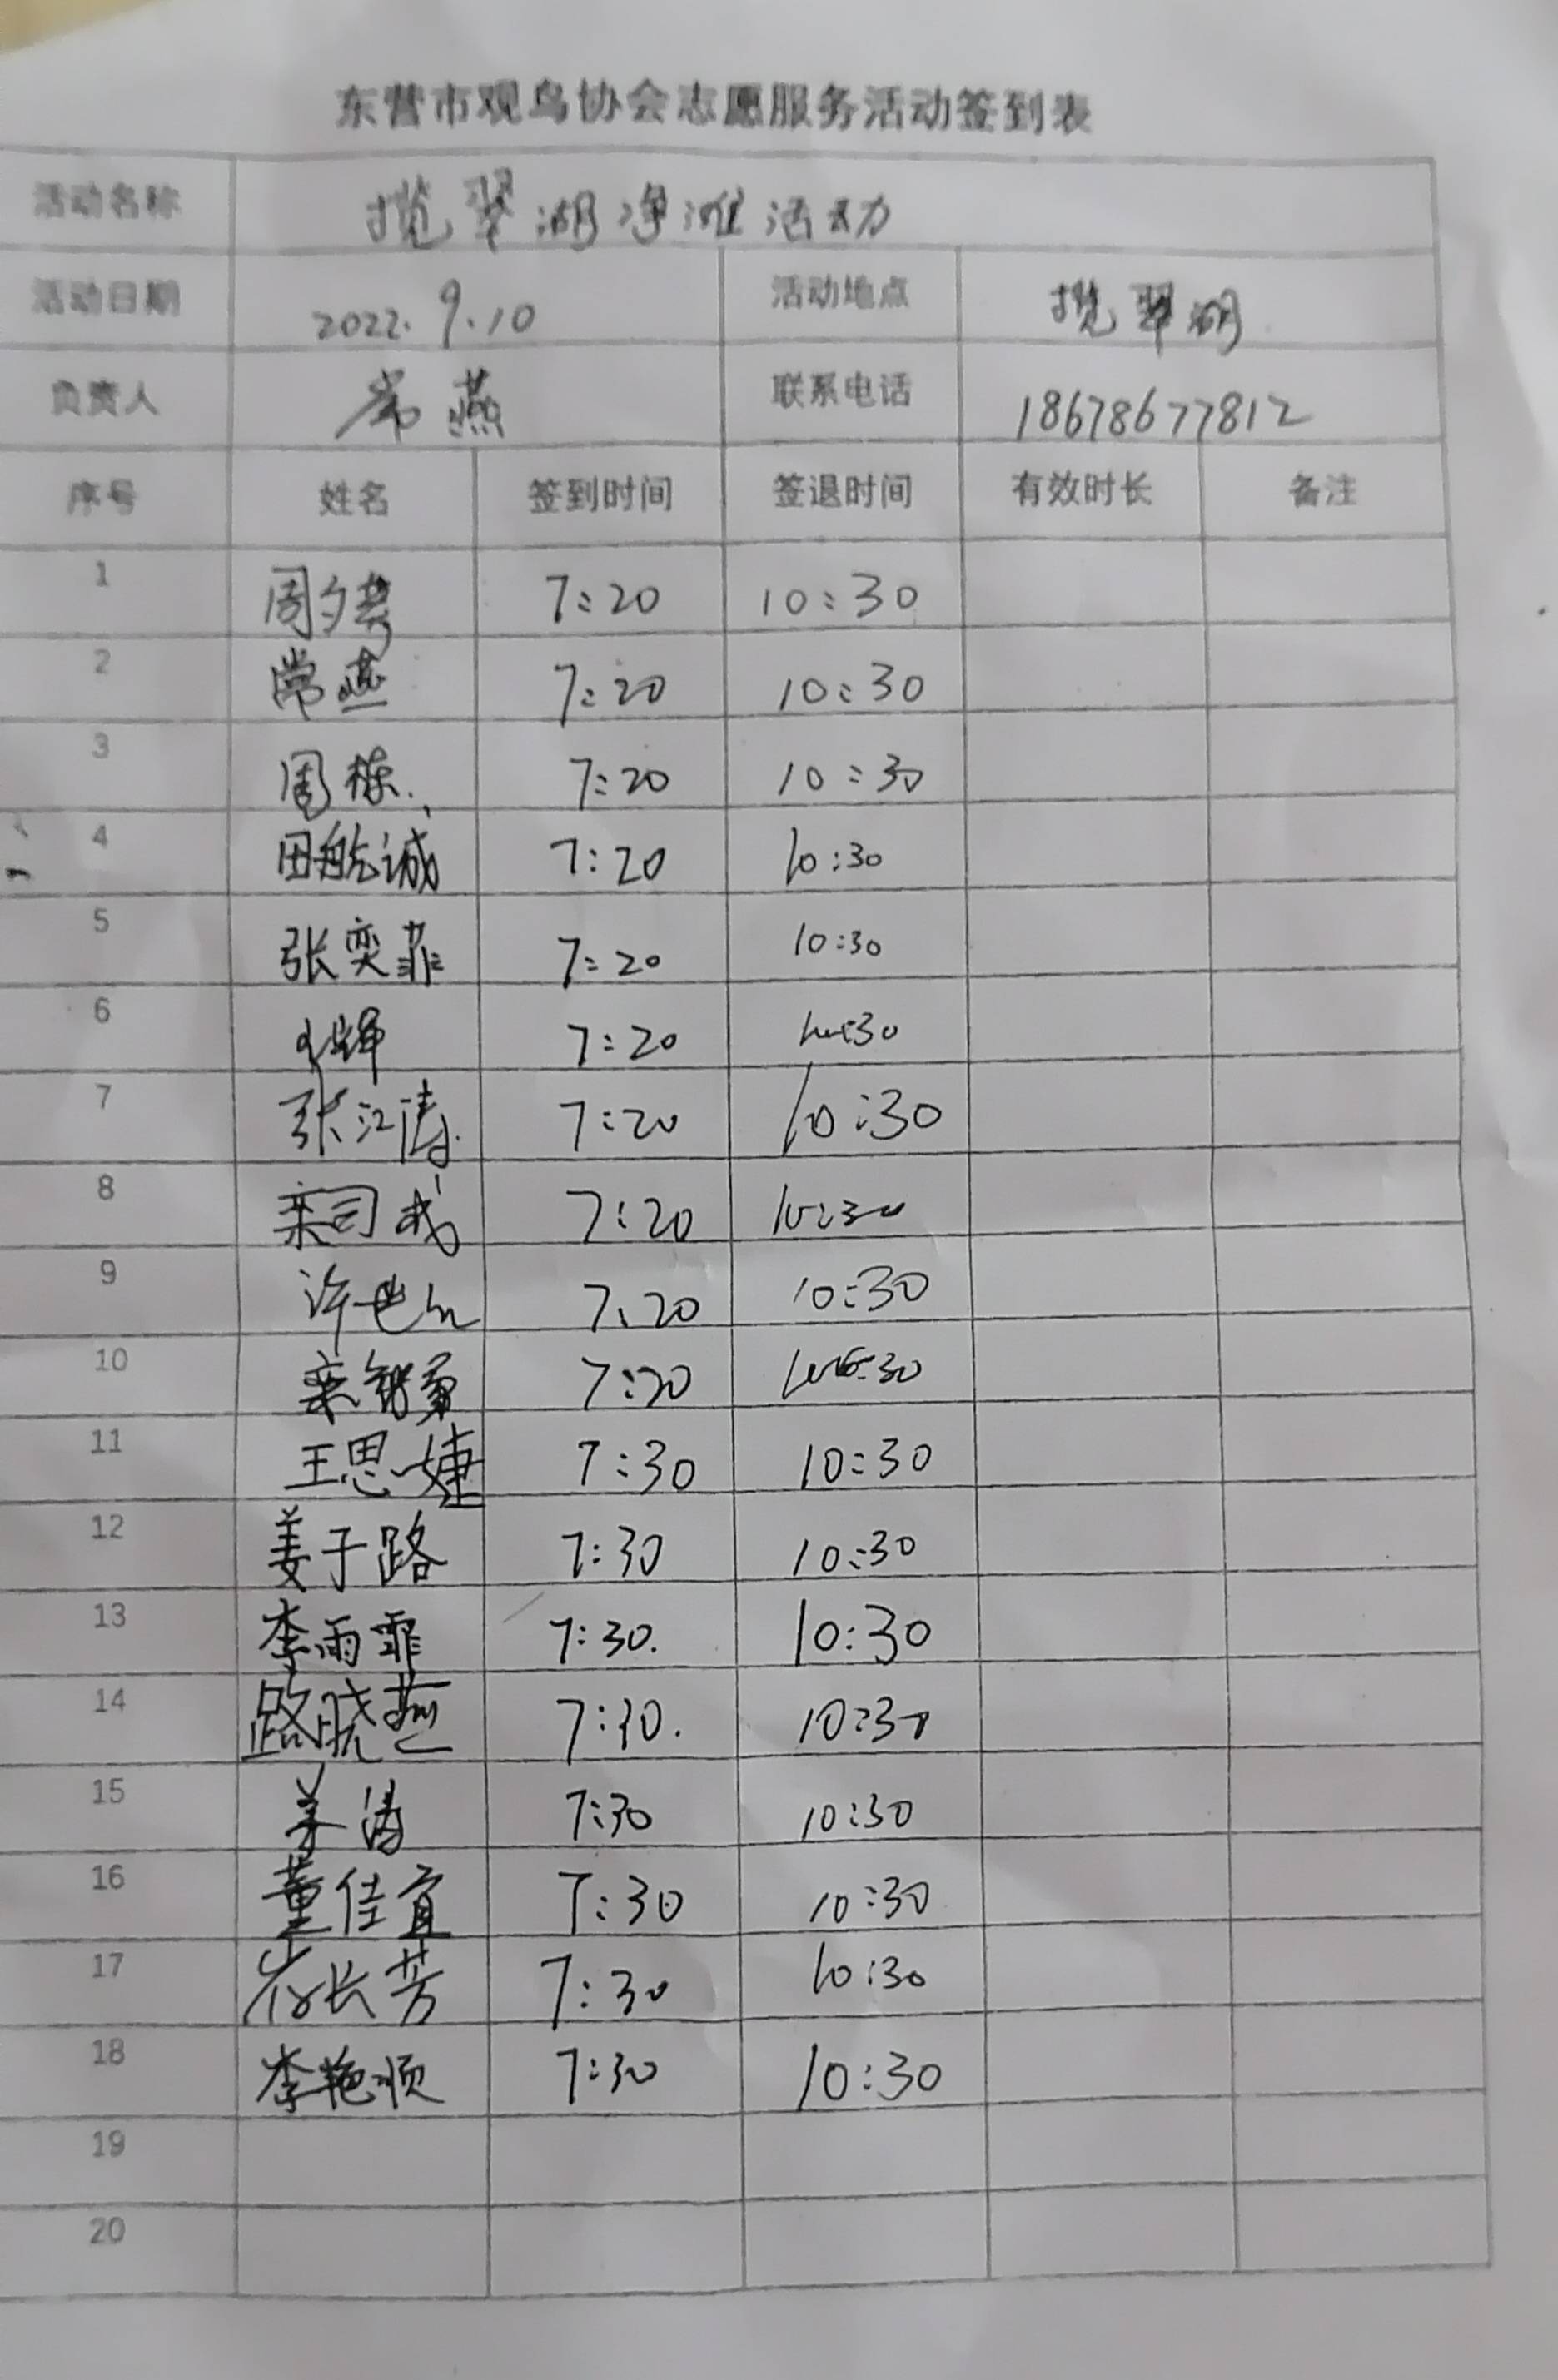 东营市观鸟协会志愿服务活动签到表
活动名称 揽翠湖净滩活动
活动日期 2022.9.10 活动地点 揽翠湖
负责人 常燕 联系电话 18678677812
序号 姓名 签到时间 签退时间 有效时长 备注
1 7:20 10:30
2 常燕 7:20 10:30
3 周栋 7:20 10:30
4 田航诚 7:20 10:30
5 张奕菲 7:20 10:30
6 7:20 10:30
7 张江涛 7:20 10:30
8 栾司成 7:20 10:30
9 7:20 10:30
10 7:20 10:30
11 王思婕 7:30 10:30
12 姜子路 7:30 10:30
13 李雨霏 7:30. 10:30
14 路晓燕 7:30. 10:30
15 姜涛 7:30 10:30
16 董佳宜 7:30 10:30
17 长芳 7:30 10:30
18 李艳顺 7:30 10:30
19
20